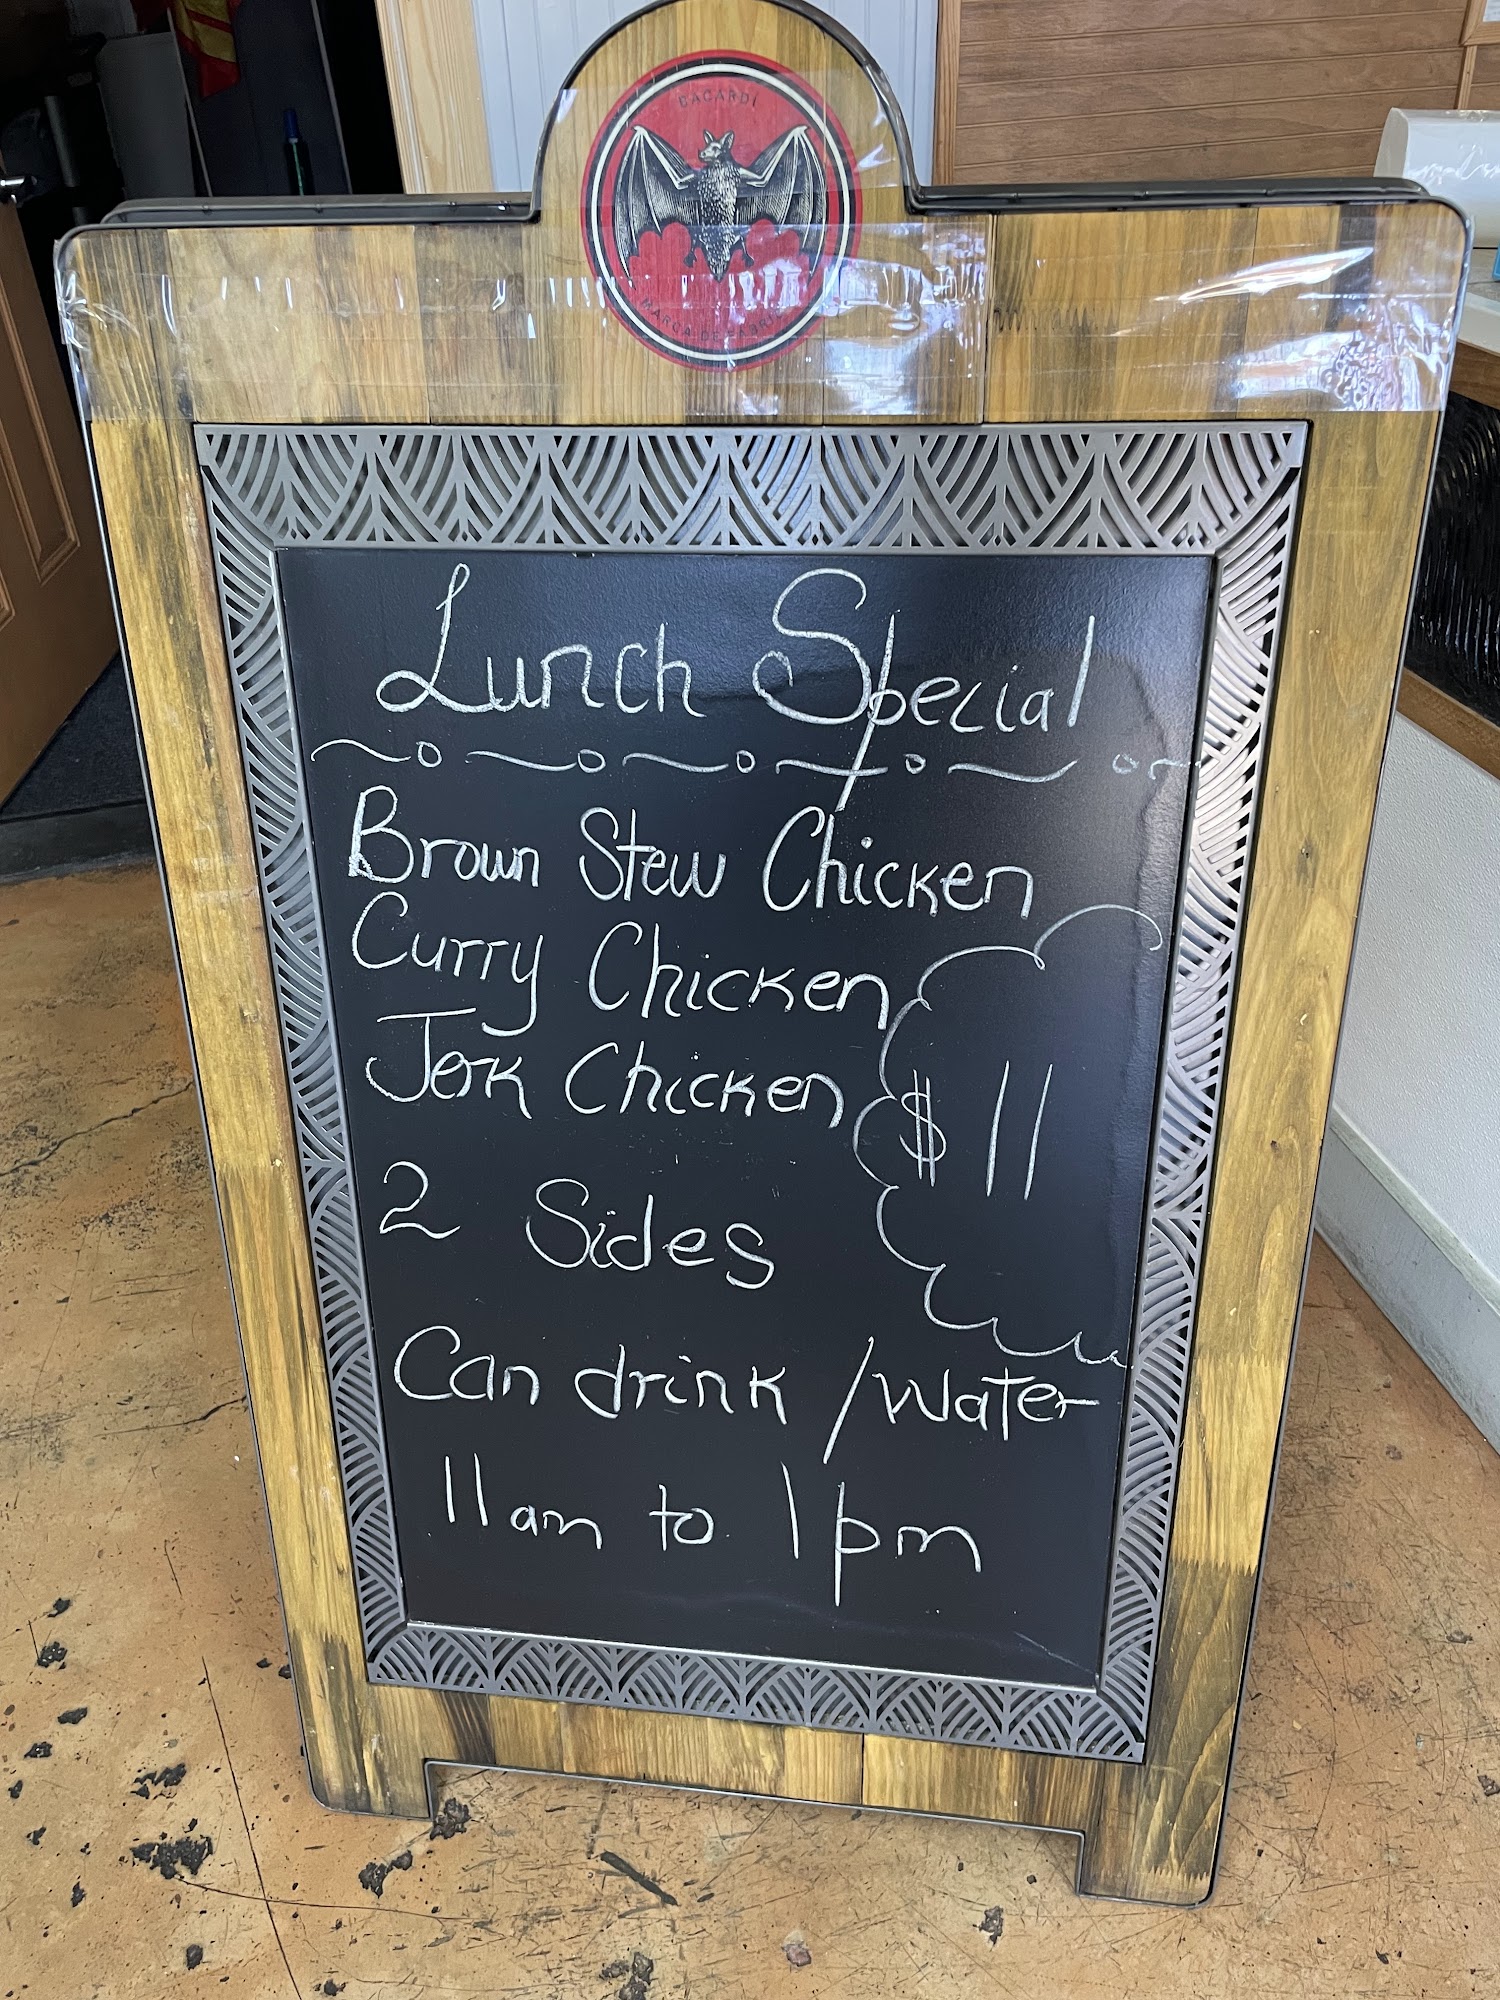 BACARDÍ
MARCA DE FABRICA
Lunch Special
Brown Stew Chicken
Curry Chicken
Jerk Chicken
$11
2 Sides
Can drink / Water
11am to 1pm